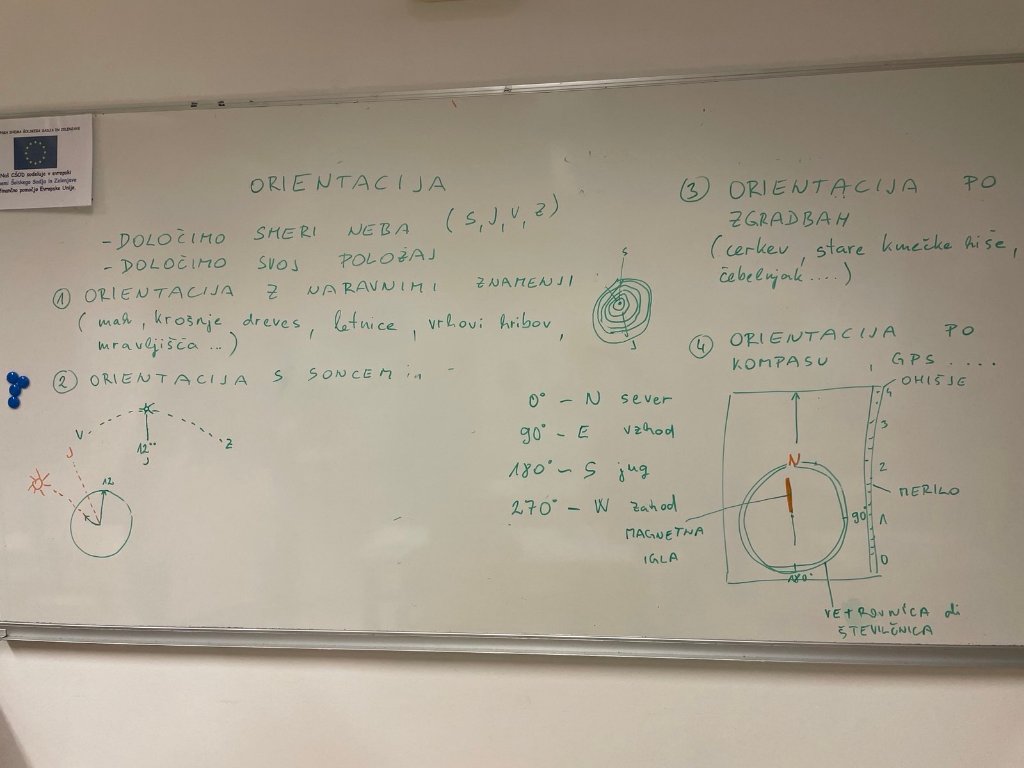 Naš CŠOD sodeluje v evropski
Shemi Šolskega Sadja in Zelenjave
s finančno pomočjo Evropske Unije
ORIENTACIJA
- DOLOČIMO SMERI NEBA (S, J, V, Z)
- DOLOČIMO SVOJ POLOŽAJ
① ORIENTACIJA Z NARAVNIMI ZNAMENJI
(mah, krošnje dreves, letnice, vrhovi hribov,
mravljišča ...)
S
J
② ORIENTACIJA S SONCEM in
V
12°°
J
Z
J
12
0° - N sever
90° - E vzhod
180° - S jug
270° - W zahod
③ ORIENTACIJA PO
ZGRADBAH
(cerkev, stare kmečke hiše,
čebelnjak....)
④ ORIENTACIJA PO
KOMPASU, GPS ....
OHIŠJE
4
3
2
1
0
MERILO
N
90°
180°
MAGNETNA
IGLA
VETROVNICA ali
ŠTEVILČNICA